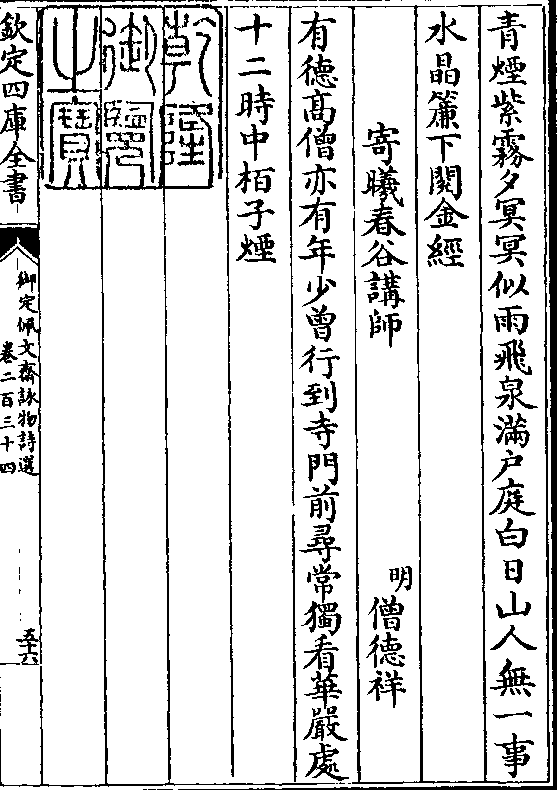 青煙紫霧夕冥冥似雨飛泉滿户庭白日山人無一事
水晶簾下閱金經
寄曦春谷講師
明 僧德祥
有德髙僧亦有年少曾行到寺門前尋常獨看華嚴處
十二時中栢子煙
乾隆
御覽
之寶
欽定四庫全書
御定佩文齋詠物詩選
卷二百三十四
五十六